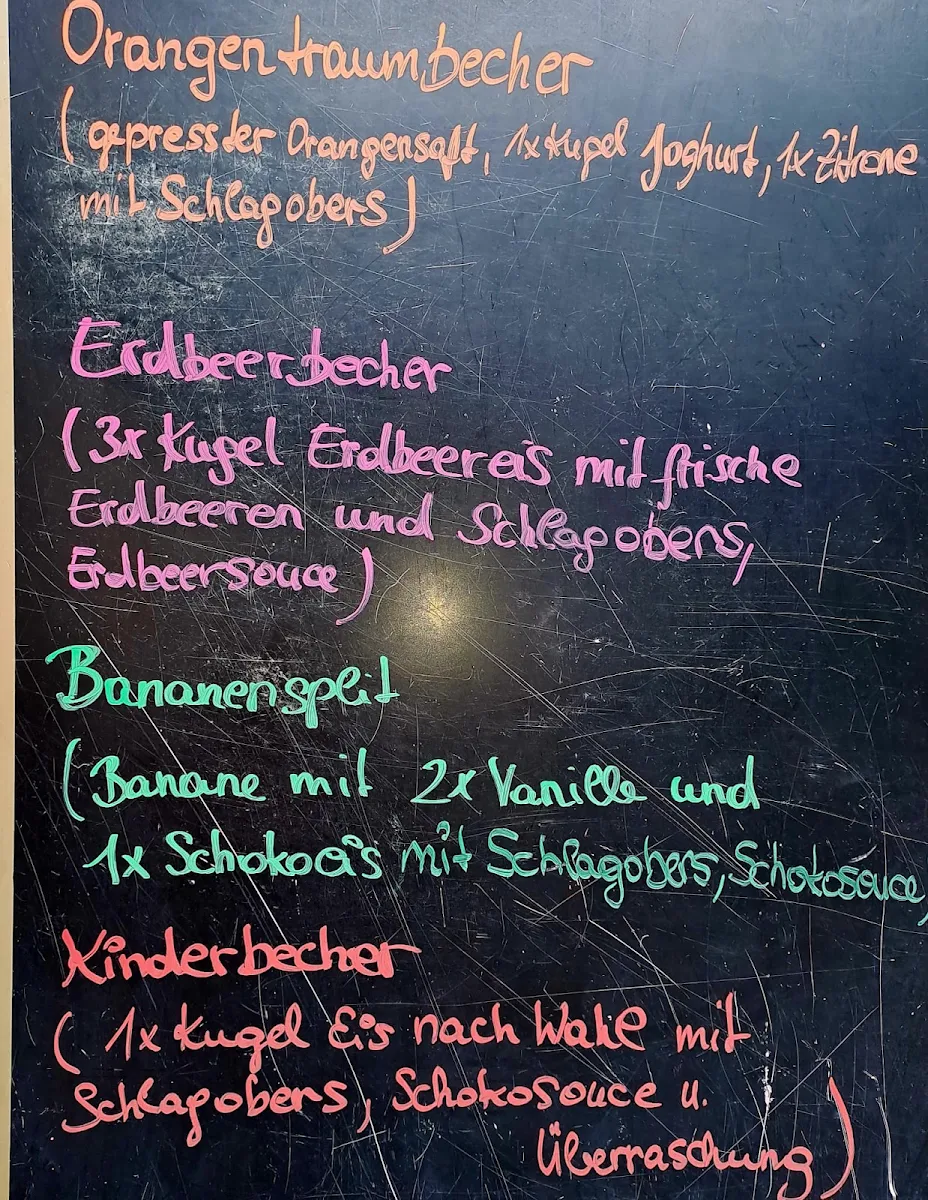 Orangentraumbecher
(gepresster Orangensaft, 1x Kugel Joghurt, 1x Zitrone
mit Schlagobers)
Erdbeerbecher
(3x Kugel Erdbeereis mit frische
Erdbeeren und Schlagobers,
Erdbeersouce)
Bananensplit
(Banane mit 2x Vanille und
1x Schokoeis mit Schlagobers, Schokosouce)
Kinderbecher
(1x Kugel Eis nach Wahl mit
Schlagobers, Schokosouce u.
Überraschung)